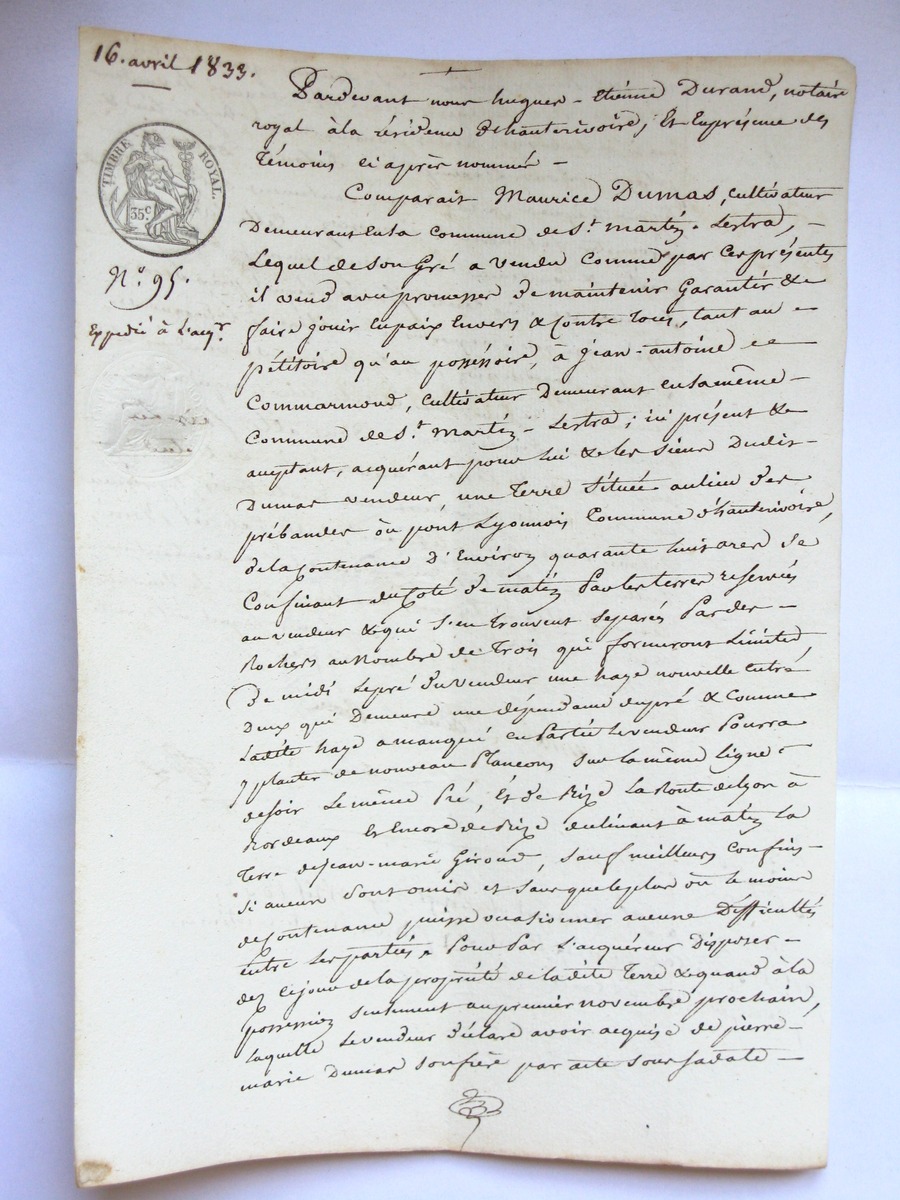 16. avril 1833.
TIMBRE ROYAL.
35c
N.o 95.
Expédié à L'acqr.
Pardevant nous hugues - Etienne Durand, notaire
royal à la résidence d'hauterivoire, Et En présence des
Témoins ci après nommés —
Comparait Maurice Dumas, cultivateur
Demeurant En la Commune de St. Martin - Lestra, —
Lequel de son Gré a vendu Comme par ces présentes
il vend avec promesses de maintenir Garantir &
faire jouir En paix Envers & Contre Tous, tant au —
pétitoire qu'au posséssoire, à jean-antoine —
Commarmond, cultivateur Demeurant en la même —
Commune de St. Martin - Lestra; ici présent &
aceptant, acquérant pour lui & les siens Dudit —
Dumas vendeur, une Terre Située au lieu des
prébandes où pont Lyonnois Commune d'hauterivoire,
de la Contenance d'Environ quarante huit ares Se
Confinant du Coté de matin Par les terres réservées
au vendeur & qui s'en trouvent séparés Par des —
Rochers au Nombre de Trois qui formeront Limites
De midi Le pré du vendeur une haye nouvelle Entre
Deux qui Demeure une dépendance du pré & Comme
Ladite haye a manqué en Partie Le vendeur Pourra
y planter de nouveau Plançons sur la même Ligne
de soir Le même Pré, Et de Bize La Route de Lyon à
Bordeaux Et Encore de Bize déclinant à matin La
Terre de Jean-marie Giroud, sauf meilleurs Confins —
Si aucun Sont omis et sans que le plus où le moins
de Contenance puisse occasionner aucune Difficultés
entre Les parties. Pour Par L'acquéreur Disposer —
dez ce jour de la propriété de la dite Terre & quand à la
possession seulement au premier novembre prochain,
Laquelle Le vendeur Déclare avoir acquise de pierre-
marie Dumas son frère par acte sous Sa date —